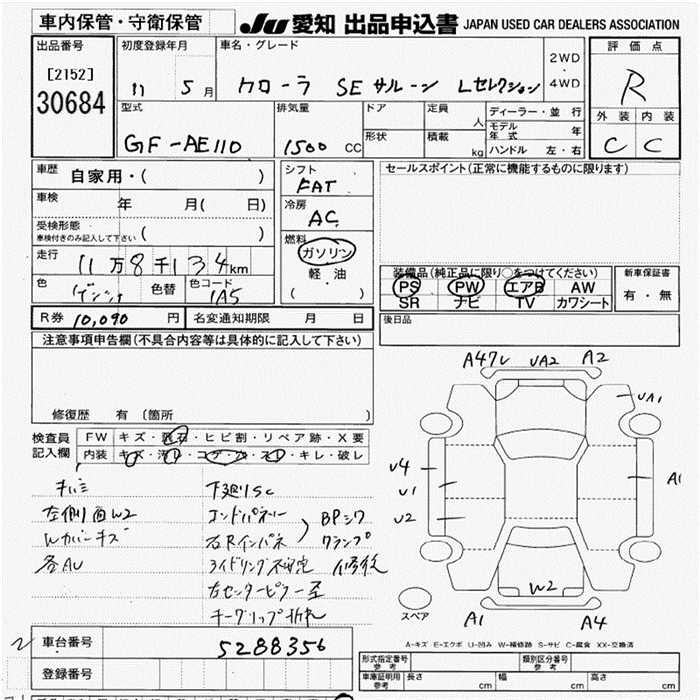 車内保管・守衛保管
JU 愛知 出品申込書 JAPAN USED CAR DEALERS ASSOCIATION
出品番号
[2152]
30684
初度登録年月
11 5 月
車名・グレード
カローラ SE サルーン Lセレクション
2WD
・
4WD
評価点
R
外装 内装
C C
型式
GF-AE110
排気量
1500 CC
ドア
形状
定員
人
積載
kg
ディーラー・並行
モデル年式 年
ハンドル 左・右
車歴
自家用・( )
車検
年 月( 日)
受検形態
車検付きのみ記入して下さい ( )
走行
11万8千134km
色
色替
色コード
1A5
シフト
FAT
冷房
AC
燃料
ガソリン
軽油
( )
セールスポイント(正常に機能するものに限ります)
装備品(純正品に限り○をつけてください)
PS PW エアB AW
SR ナビ TV カワシート
新車保証書
有・無
R券 10,090 円
名変通知期限 月 日
後日品
注意事項申告欄(不具合内容等は具体的に記入して下さい)
修復歴 有 (箇所 )
検査員
記入欄
FW キズ・飛石・ヒビ割・リペア跡・X要
内装 キズ・汚レ・コゲ・穴・スレ・キレ・破レ
キハミ
左側面W2
Wカバーキズ
各AU
下廻りSC
エンドパネリー
右Rインパネ
BPシワ
クランプ
修後
左センターピラー歪
チーグリップ折れ
A47レ UA2 A2
UA1
U4
U1
U2
A1
W2
A1
A4
スペア
A-キズ E-エクボ U-凹み W-補修跡 S-サビ C-腐食 XX-交換済
車台番号
5288356
登録番号
形式指定番号
参考
類別区分番号
参考
車庫証明用
参考
長さ cm
幅 cm
高さ cm